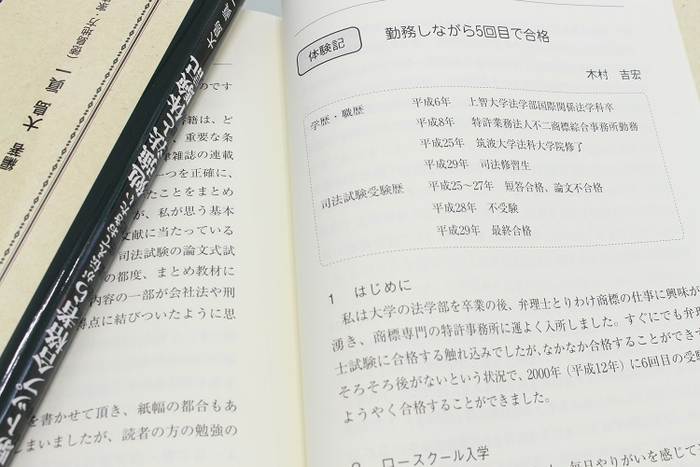 編著 大島 眞一
大島 眞一
のです
籍は、ど
重要な条
律雑誌の連載
一つを正確に、
たことをまとめ
が、私が思う基本
文献に当たっている
司法試験の論文式試
の都度、まとめ教材に
内容の一部が会社法や刑
得点に結びついたように思
を書かせて頂き、紙幅の都合もあ
まいましたが、読者の方の勉強の
体験記
勤務しながら5回目で合格
木村 吉宏
学歴・職歴
平成6年 上智大学法学部国際関係法学科卒
平成8年 特許業務法人不二商標綜合事務所勤務
平成25年 筑波大学法科大学院修了
平成29年 司法修習生
司法試験受験歴
平成25~27年 短答合格、論文不合格
平成28年 不受験
平成29年 最終合格
1 はじめに
私は大学の法学部を卒業の後、弁理士とりわけ商標の仕事に興味が
湧き、商標専門の特許事務所に運よく入所しました。すぐにでも弁理
士試験に合格する触れ込みでしたが、なかなか合格することができず
そろそろ後がないという状況で、2000年(平成12年)に6回目の受験
ようやく合格することができました。
ロースクール入学
毎日やりがいを感じて